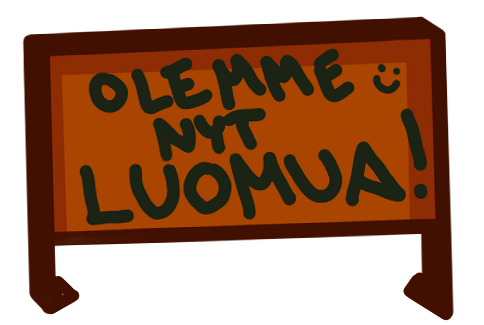 OLEMME :)
NYT
LUOMUA!